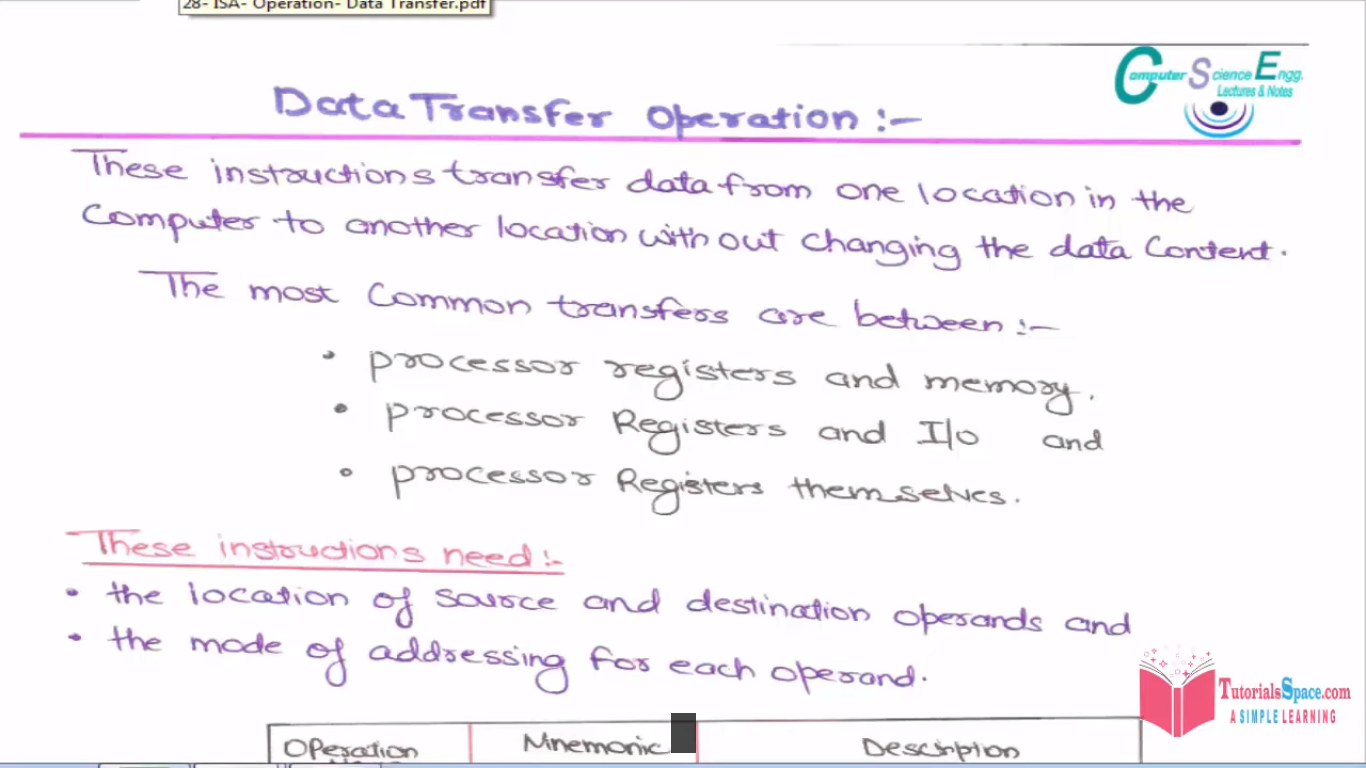 28- ISA- Operation- Data Transfer.pdf
Computer Science Engg.
Lectures & Notes
Data Transfer Operation :-
These instructions transfer data from one location in the
Computer to another location without changing the data Content.
The most Common transfers are between :-
• processor registers and memory.
• processor Registers and I/o and
• processor Registers themselves.
These instructions need :-
• the location of source and destination operands and
• the mode of addressing for each operand.
TutorialsSpace.com
A SIMPLE LEARNING
Operation Mnemonic Description